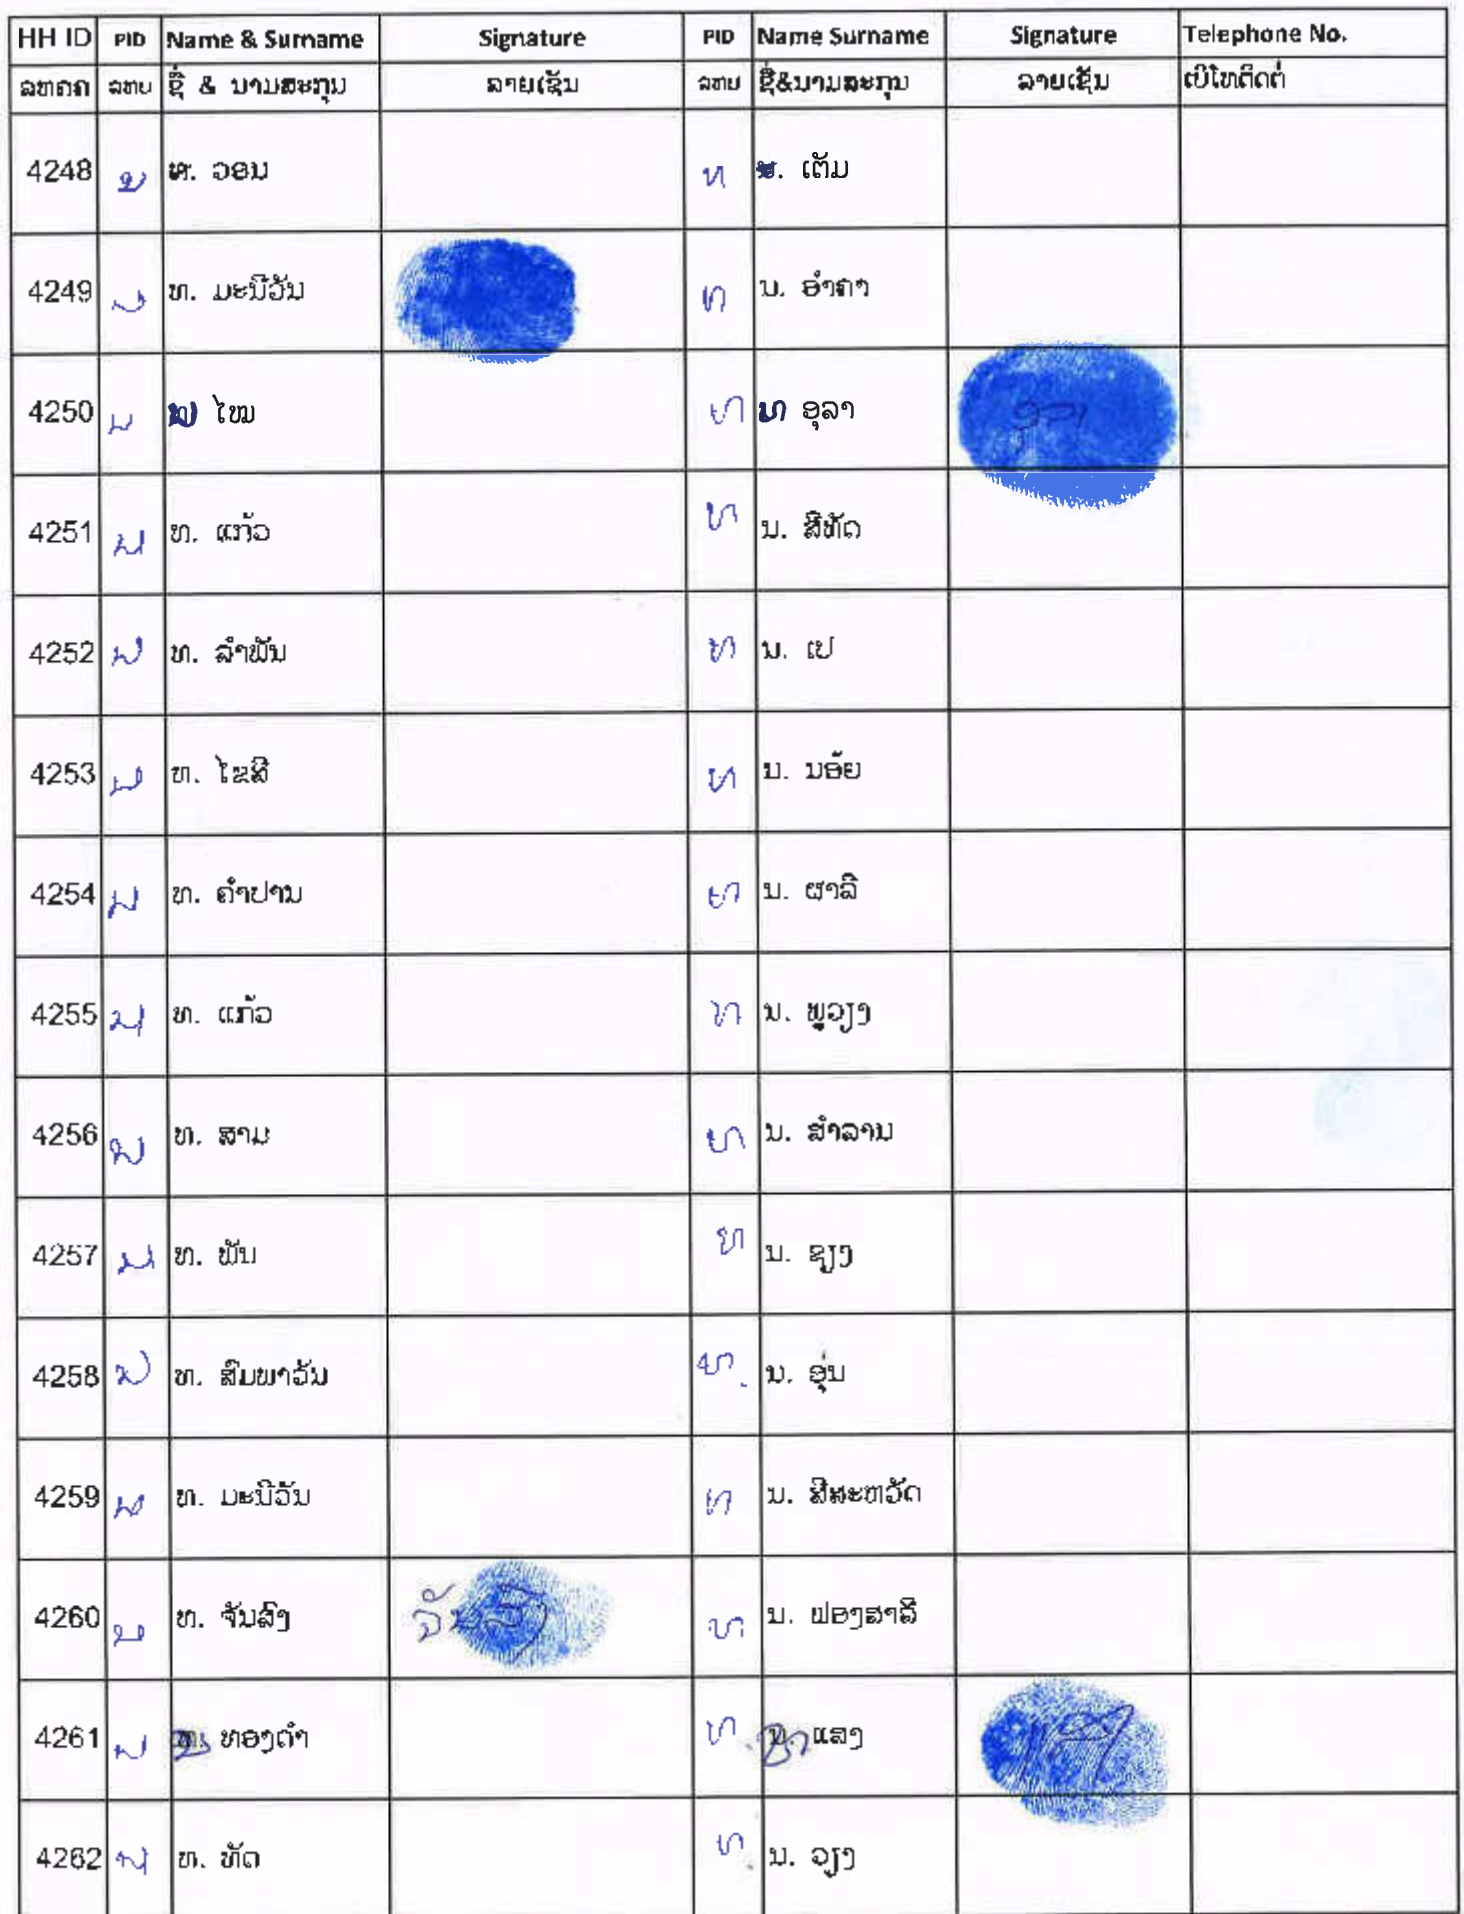 HH ID PID Name & Surname Signature PID Name Surname Signature Telephone No.
ລຫຄຄ ລຫບ ຊື່ & ນາມສະກຸນ ລາຍເຊັນ ລຫບ ຊື່&ນາມສະກຸນ ລາຍເຊັນ ເບີໂທຕິດຕໍ່
4248 ນ ວອນ ທ ເຕັມ
4249 ນ ທ. ມະນີວັນ ທ ນ. ອຳຄາ
4250 ນ ໄໝ ທ ທ ອຸລາ
4251 ນ ທ. ແກ້ວ ທ ນ. ສີທັດ
4252 ນ ທ. ລຳພັນ ທ ນ. ເປ
4253 ນ ທ. ໄຂສີ ທ ນ. ນອ້ຍ
4254 ນ ທ. ຄຳປານ ທ ນ. ຜາລີ
4255 ນ ທ. ແກ້ວ ທ ນ. ພູວຽງ
4256 ນ ທ. ສາມ ທ ນ. ສຳລານ
4257 ນ ທ. ພັນ ທ ນ. ຊຽງ
4258 ນ ທ. ສົມພາວັນ ທ ນ. ອຸ່ນ
4259 ນ ທ. ມະນີວັນ ທ ນ. ສີສະຫວັດ
4260 ນ ທ. ຈັນສົງ ຈັນສົງ ທ ນ. ຟອງສາລີ
4261 ນ ທອງດຳ ທ ແສງ
4262 ນ ທ. ທັດ ທ ນ. ວຽງ